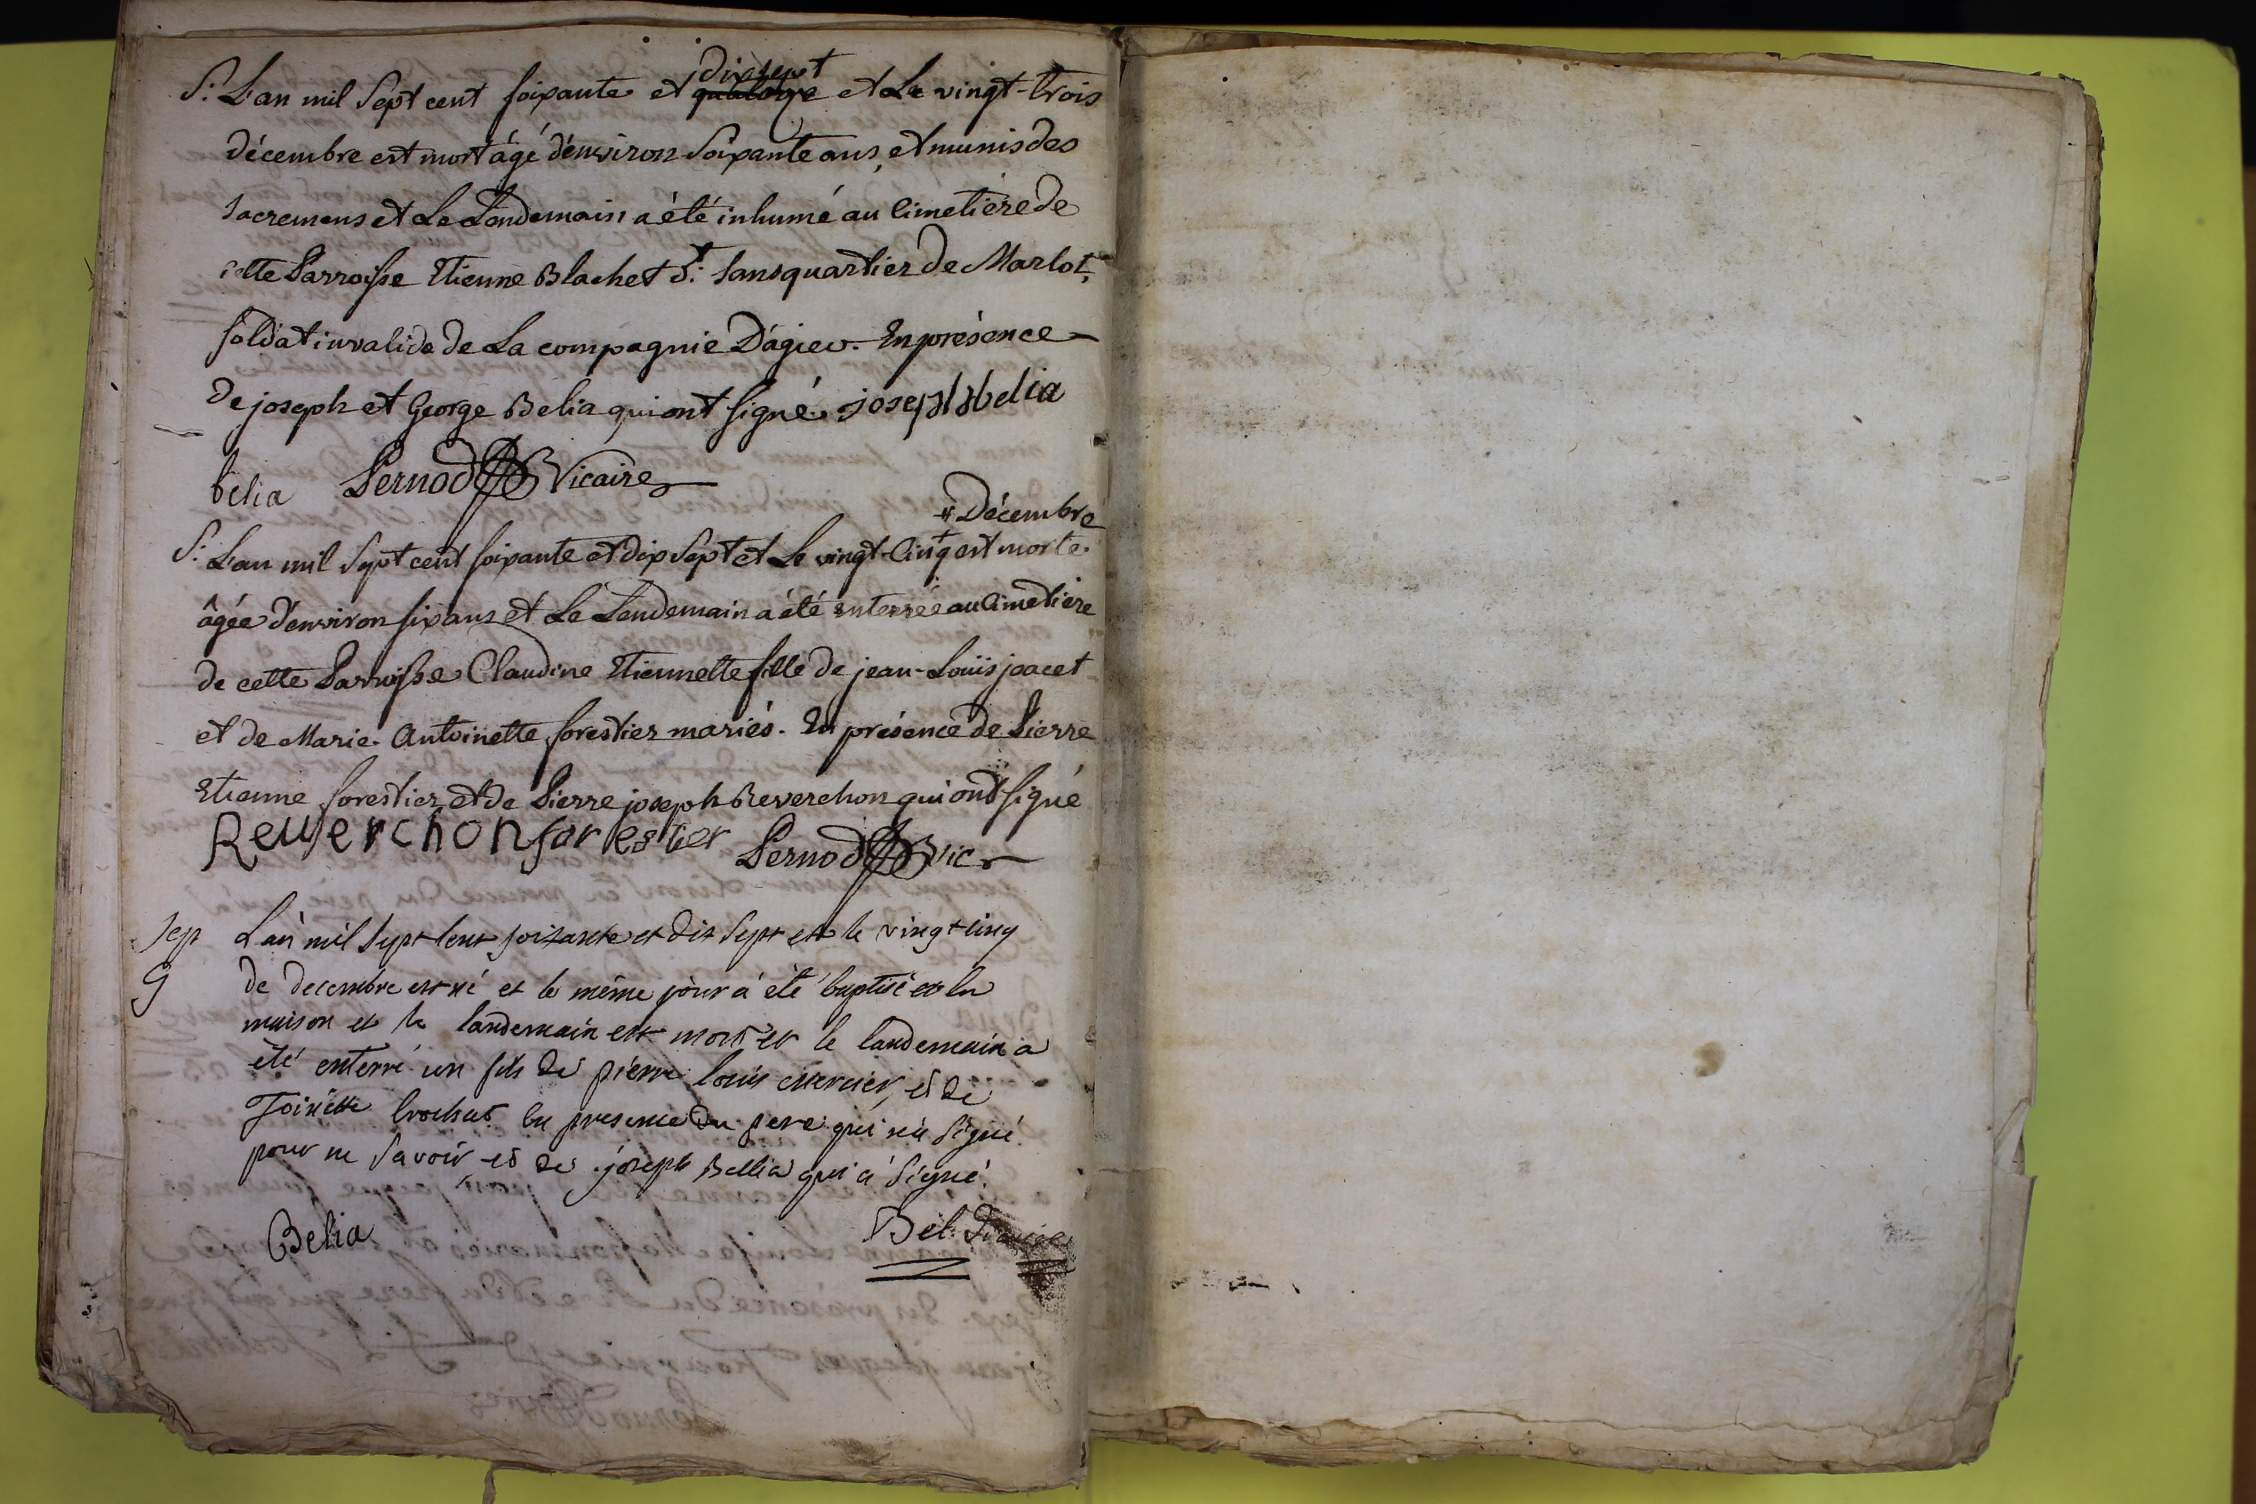 dixsept
S. L'an mil Sept cent soixante et quatorze et Le vingt-trois
décembre est mort âgé d'environ Soixante ans, et munis des
sacremens et Le Lendemain a été inhumé au Cimetiére de
cette Parroisse Etienne Blachet dt. Sansquartier de Marlot,
soldat invalide de La compagnie D'ágiev. En présence
De joseph et George Belia qui ont signé. joseph belia
belia Pernod Vicaire
# Décembre
S. L'an mil Sept cent soixante et dix Sept et Le vingt-Cinq est morte
âgée d'environ six ans et Le Lendemain a été enterrée au Cimetiére
de cette Parroisse Claudine Etiennette fille de jean-Louis joacet
et de Marie-Antoinette forestier mariés. En présence de Pierre
Etienne forestier et de Pierre joseph Reverchon qui ont signé
Reuerchon forestier Pernod vic
Sep L'an mil Sept Cent soixante et dix Sept et le vingt cinq
G de decembre est né et le même jour a été baptisé en la
maison et le landemain est mort et le landemain a
été enterré un fils de piérre louis mercier, et de
Toinette brochat En presence du pere qui n'a signé
pour ne Savoir, et de joseph Bellia qui a Signé.
Belia Bel.